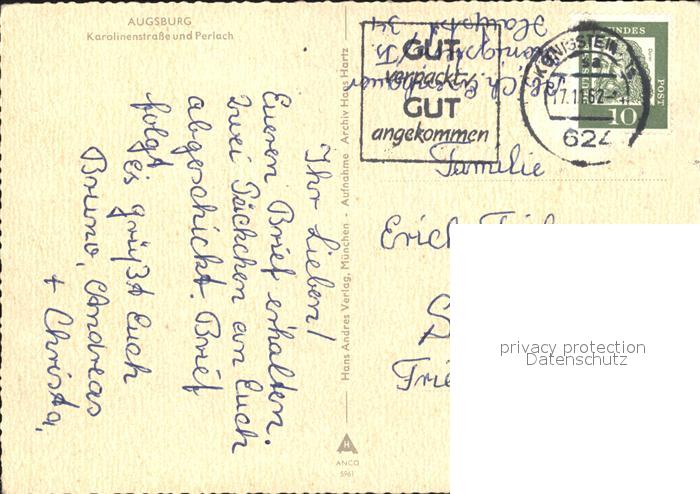 AUGSBURG
Karolinenstraße und Perlach
Ihr Lieben!
Eueren Brief erhalten.
Zwei Päckchen an Euch
abgeschickt. Brief
folgt
Es grüßt Euch
Bruno, Andreas
+ Christa,
Hans Andres Verlag, München - Aufnahme Archiv Hans Hartz
ANCO
5961
GUT
verpackt,
GUT
angekommen
KÖNIGSTEIN
17.11.62
624
BUNDES
POST
10
Königstein/Ts.
Hauptstr. 34
Familie
Erich
privacy protection
Datenschutz